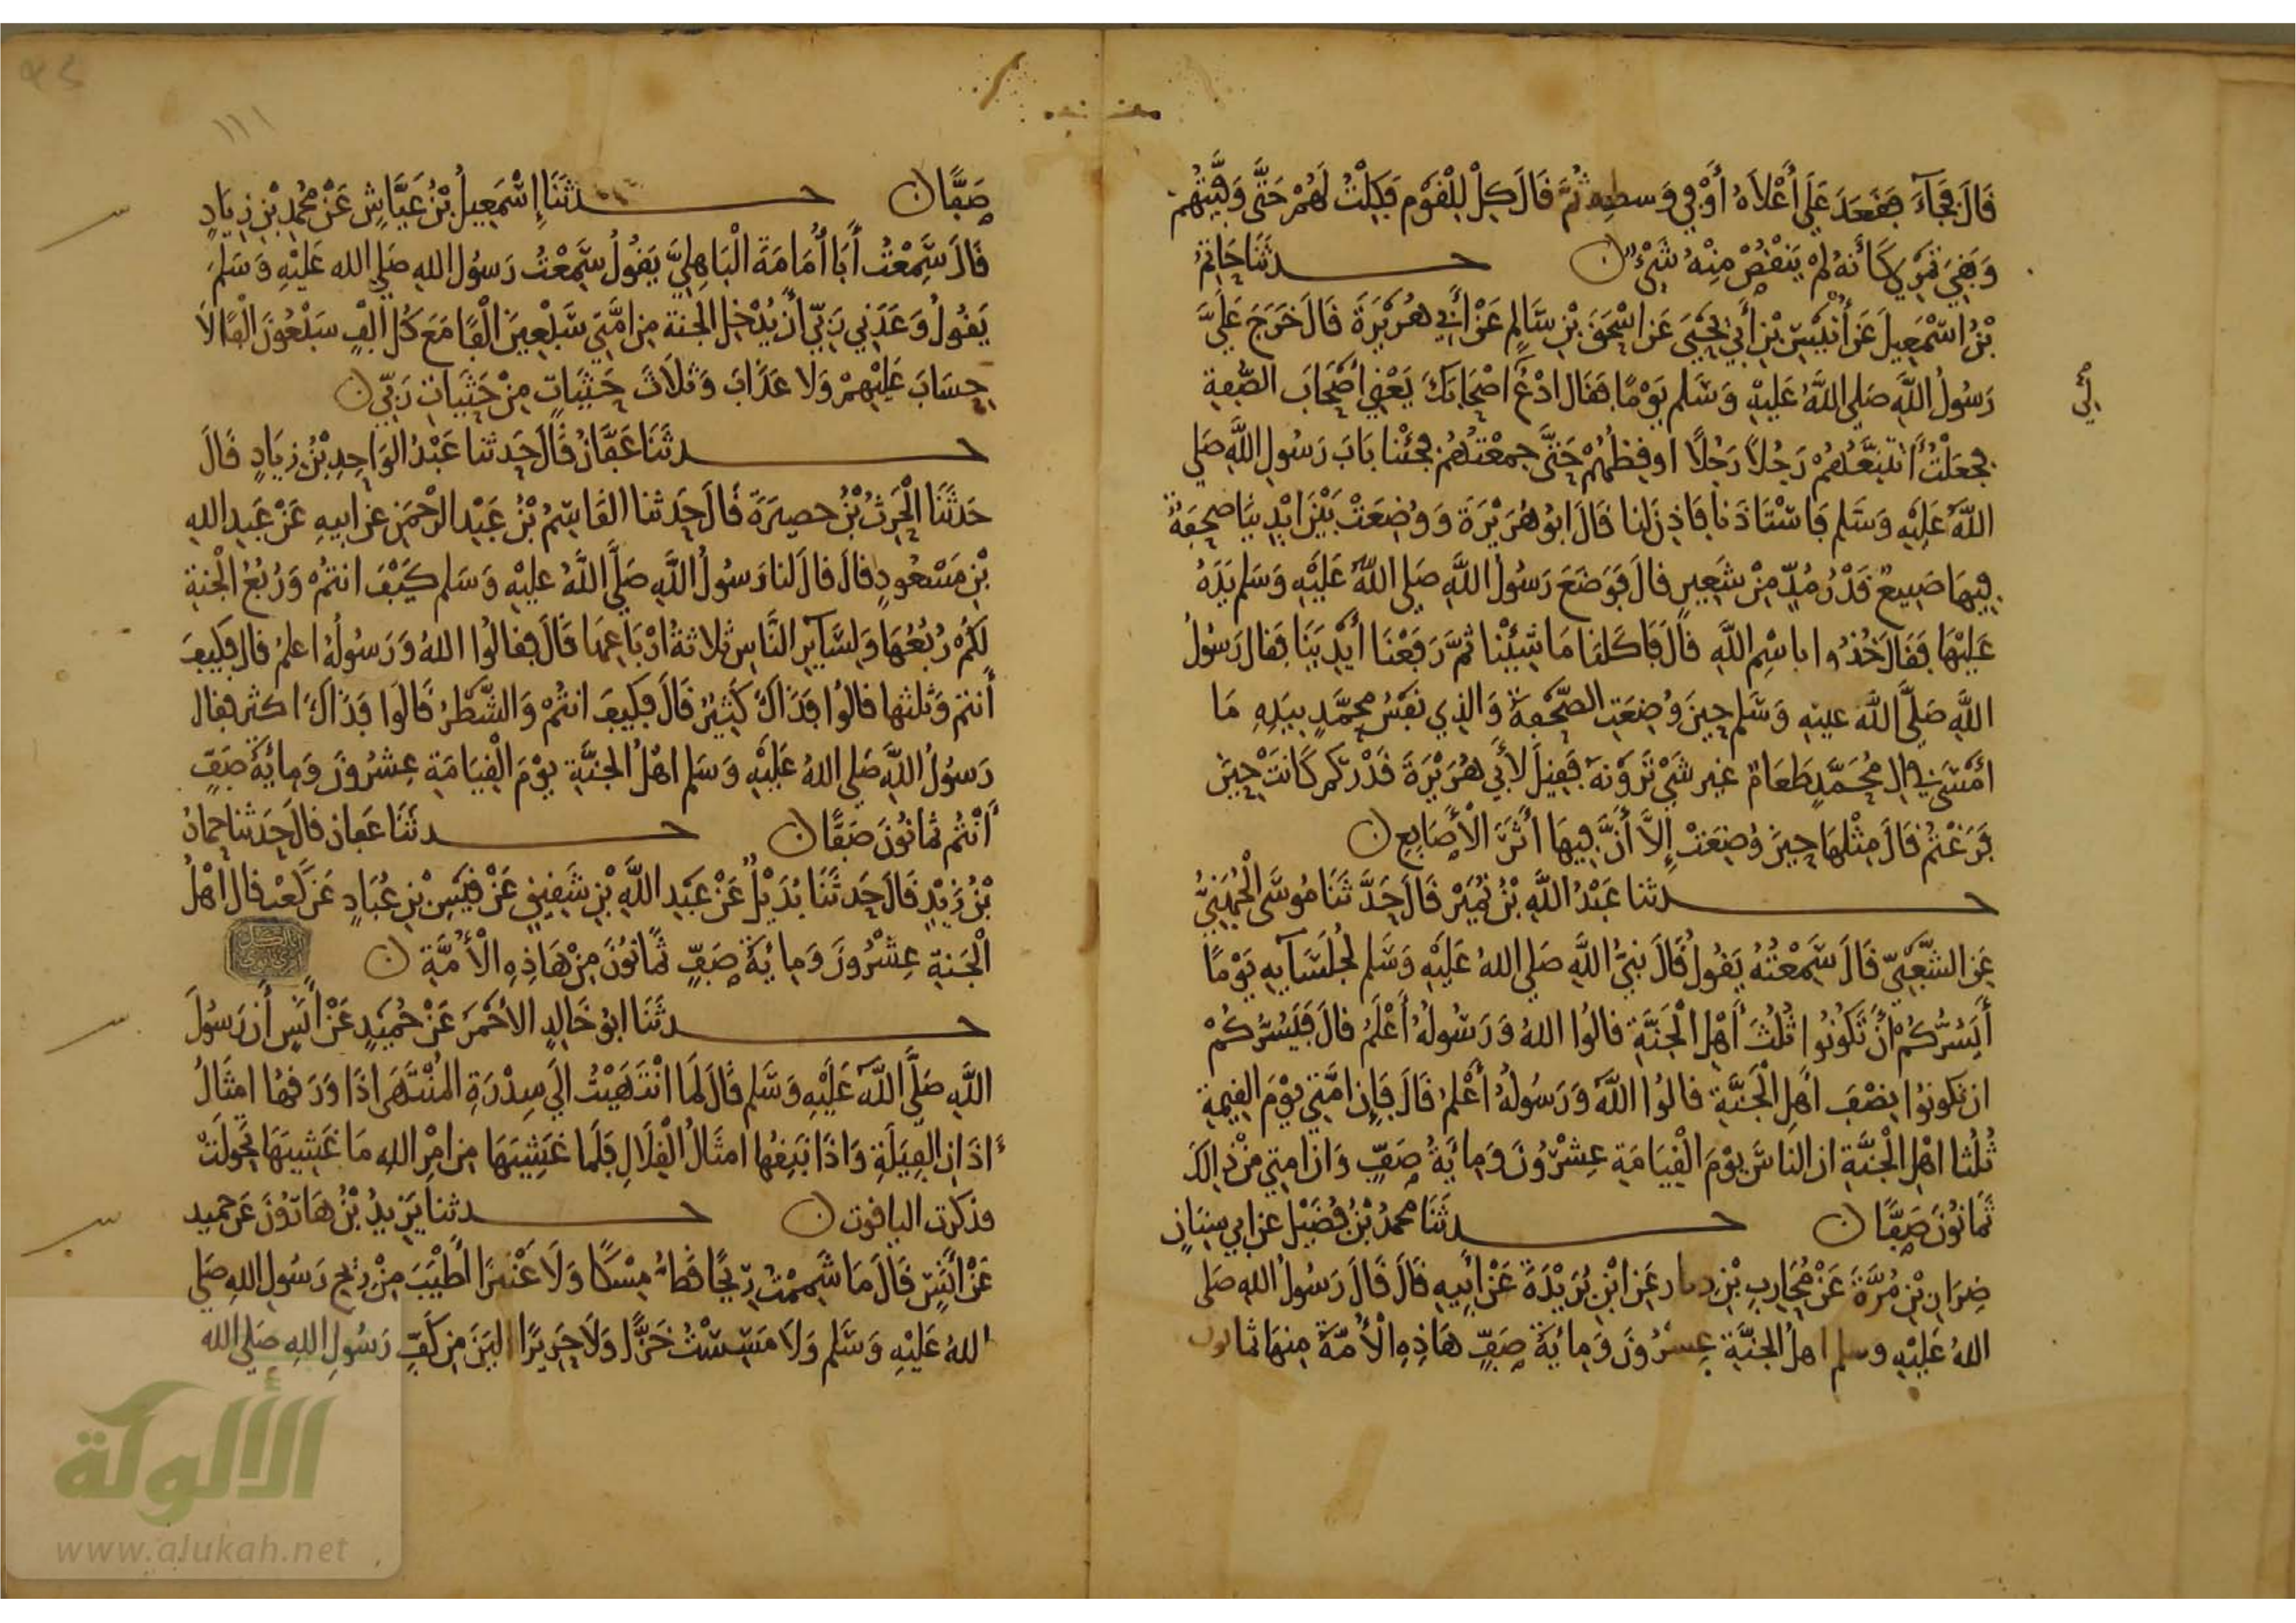 قَالَ فَجَآءَ فَقَعَدَ عَلَى أَعْلَاهُ أَوْ فِي وَسطِهِ ثُمَّ قَالَ كِلْ لِلْقَوْمِ فَكِلْتُ لَهُمْ حَتَّى وَفَّيْتُهُمْ
وَبَقِيَ تَمْرِي كَأَنَّهُ لَمْ يَنْقُصْ مِنْهُ شَيْءٌ ن حدثَنَا حَاتِمُ
بْنُ اسْمَعِيلَ عَنْ أُنَيْسِ بْنِ أَبِي يَحْيَى عَنِ اسْحَقَ بْنِ سَالِمٍ عَنْ أَبِي هُرَيْرَةَ قَالَ خَرَجَ عَلَيَّ
رَسُولُ اللَّهِ صَلى اللَّهُ عَلَيْهِ وَسَلم يَوْمًا فَقَال ادْعُ اصْحَابَكَ يَعْنِي أَصْحَابَ الصُّفَّةِ
فجعَلْتُ أَتَتَبَّعُهُمْ رَجُلًا رَجُلًا اوقِظُهُمْ حَتَّى جمعْتُهُمْ فجئنا بَابَ رَسُولِ اللَّهِ صَلى
اللَّهُ عَلَيْهِ وَسَلم فَاسْتَاذَنا فَاذِنَ لنا قَالَ ابُو هُرَيْرَةَ وَوُضِعَتْ بَيْنَ ايْدِينَا صحفةٌ
فِيهَا صَنِيعٌ قَدْرُ مُدٍّ مِنْ شَعِيرٍ قالَ فَوَضَعَ رَسُولُ اللَّهِ صَلى اللَّهُ عَلَيْهِ وَسَلم يَدَهُ
عَلَيْهَا فَقَالَ خُذُوا باسْمِ اللَّهِ قَالَ فَاكَلنا مَا شِئْنا ثُمَّ رَفَعْنَا أَيْدِيَنَا فقال رَسُولُ
اللَّهِ صَلَّى اللَّه عليه وَسَلم حِينَ وُضِعَتِ الصَّحْفَةُ وَالذِي نَفْسُ محمَّدٍ بِيَدِهِ مَا
امْسَى فِي الِ مُحَمَّدٍ طَعَامٌ غير شَيْ تَرَوْنَهُ فَقِيلَ لأَبِي هُرَيْرَةَ قَدْرَ كَمْ كَانَتْ حِينَ
فَرَغْتُمْ قَالَ مِثْلهَا حِينَ وُضِعَتْ إِلاَّ أَنَّ فِيهَا أَثَرَ الْأَصَابِعِ ن
حدثنا عَبْدُ اللَّهِ بْنُ نُمَيْرٍ قَالَ حَدَّثَنَا مُوسَى الْجُهَنِيُّ
عَنِ الشَّعْبِيِّ قَالَ سَمِعْتُهُ يَقُولُ قَالَ نبيُّ اللَّهِ صَلى اللهُ عَلَيْهِ وَسَلم لجُلَسَآيِهِ يَوْمًا
أَيَسُرُّكُمْ أَنْ تَكُونُوا ثُلُثَ أَهْلِ الْجَنَّةِ قالُوا اللهُ وَرَسُولُهُ أَعْلَمُ قالَ فَيَسُرُّكُمْ
ان تكونُوا نِصْفَ اهلِ الْجَنَّةِ قالُوا اللَّه وَرَسُولُهُ أَعْلَمُ قَالَ فَإِن امَّتِي يَوْمَ القِيمةِ
ثُلُثا اهْلِ الْجَنَّةِ ان النَاسَ يوْمَ الْقِيَامَةِ عِشْرُونَ وَمِايَةُ صَفٍّ وَان امتِي مِنْ ذالِكَ
ثَمَانُونَ صَفًّا ن حدثَنَا محمدُ بْنُ فُضَيْل عن ابي سِنَانٍ
ضِرَارِ بْنِ مُرَّةَ عَنْ مُحَارِبِ بْنِ دِثار عَنِ ابْنِ بُرَيْدَةَ عَنْ أَبِيهِ قَالَ قَالَ رَسُولُ اللهِ صَلى
اللهُ عَلَيْهِ وسلم اهلُ الجنَّةِ عِشْرُونَ وَمِايَةُ صَفٍّ هَاذِهِ الْأُمَّةُ مِنهَا ثمانون
لِي
١١١
صَفًّا ن حدثَنَا إِسْمَعِيلُ بْنُ عَيَّاشٍ عَنْ مُحمدِ بْنِ زِيَادٍ
قَالَ سَمِعْتُ أَبَا أُمَامَةَ الْبَاهِلِيَّ يَقُولُ سَمِعْتُ رَسُولَ اللهِ صَلى الله عَلَيْهِ وَسَلمَ
يَقُولُ وَعَدَنِي رَبِّي أَنْ يُدْخِلَ الجنةَ مِن امَّتِي سَبْعِينَ الْفًا مَعَ كُل الْفٍ سَبْعُونَ الْفًا لَا
حِسَابَ عَلَيْهِمْ وَلا عَذَابَ وَثَلَاثَ حَثَيَاتٍ مِنْ حَثَيَاتِ رَبِّي ن
حدثَنَا عَفَّانُ قَالَ حَدثنا عَبْدُ الوَاحِدِ بْنُ زِيَادٍ قَالَ
حَدَثَنَا الْحَرِثُ بْنُ حصِيرَةَ قَالَ حَدثنا القَاسِمُ بْنُ عَبْدِ الرَّحْمَنِ عن ابيهِ عَنْ عَبدِ اللهِ
بْنِ مَسْعُودٍ قالَ قَالَ لنا رَسُولُ اللَّهِ صَلَّى اللَّهُ عليْهِ وَسَلم كَيْفَ انتُمْ وَرُبُعُ الْجنةِ
لَكُمْ رُبُعُهَا وَلِسَآيِرِ النَّاسِ ثلاثةُ ارْبَاعِهَا قَالَ فقالُوا اللهُ وَرَسُولُهُ اعلمُ قال فَكَيفَ
أَنتم وَثلثها قالُوا فَذَاكَ كَثِيرٌ قَالَ فَكَيفَ انتُمْ وَالشَّطْرُ قَالُوا فَذَاكَ اكثر فقال
رَسُولُ اللَّهِ صَلى اللهُ عَلَيْهِ وَسَلم اهْلُ الجَنَّةِ يوْمَ الْقِيَامَةِ عِشْرُونَ وَمِايَةُ صَفٍّ
أَنْتُم ثمانُونَ صَفًّا ن حدثَنَا عَفان قالَ حَدَثنا حمادُ
بْنُ زَيْدٍ قَالَ حَدثَنَا بُدَيْلٌ عَنْ عَبْدِ اللَّهِ بْنِ شَقِيقٍ عَنْ قَيْسِ بْنِ عُبَادٍ عَن كَعْبٍ قال أَهْلُ
الْجَنةِ عِشْرُونَ وَمِايَةُ صَفٍّ ثَمَانُونَ مِنْ هَاذِهِ الْأُمَّةِ ن
حدثَنَا ابُو خَالِدٍ الاحْمَرُ عَنْ حُمَيْدٍ عَنْ أَنَسٍ أَن رَسُولَ
اللَّهِ صَلَّى اللَّه عَلَيْهِ وَسَلم قَالَ لَمَا انْتَهَيْتُ الَى سِدْرَةِ المُنْتَهَى اذَا وَرَقهَا امثَالُ
اذَانِ الفِيَلَةِ وَاذَا نَبقُهَا امثَالُ الْقِلَالِ فَلَما غَشِيَهَا مِن امْرِ اللهِ مَا غَشِيَهَا تحَوَلَتْ
فذكرت الياقوت ن حدثنا يَزِيدُ بْنُ هَارُونَ عَن حميد
عَنْ انَسٍ قَالَ مَا شَمِمْتُ رِيحًا قطُّ مِسْكًا وَلَا عَنْبَرًا اطْيَبَ مِنْ رِيحِ رَسُولِ اللهِ صَلى
اللهُ عَلَيْهِ وَسَلم وَلَا مَسِسْتُ خَزًّا وَلَا حَرِيرًا الْيَنَ مِن كَفِّ رَسُولِ اللهِ صَلى الله
الألوكة
www.alukah.net